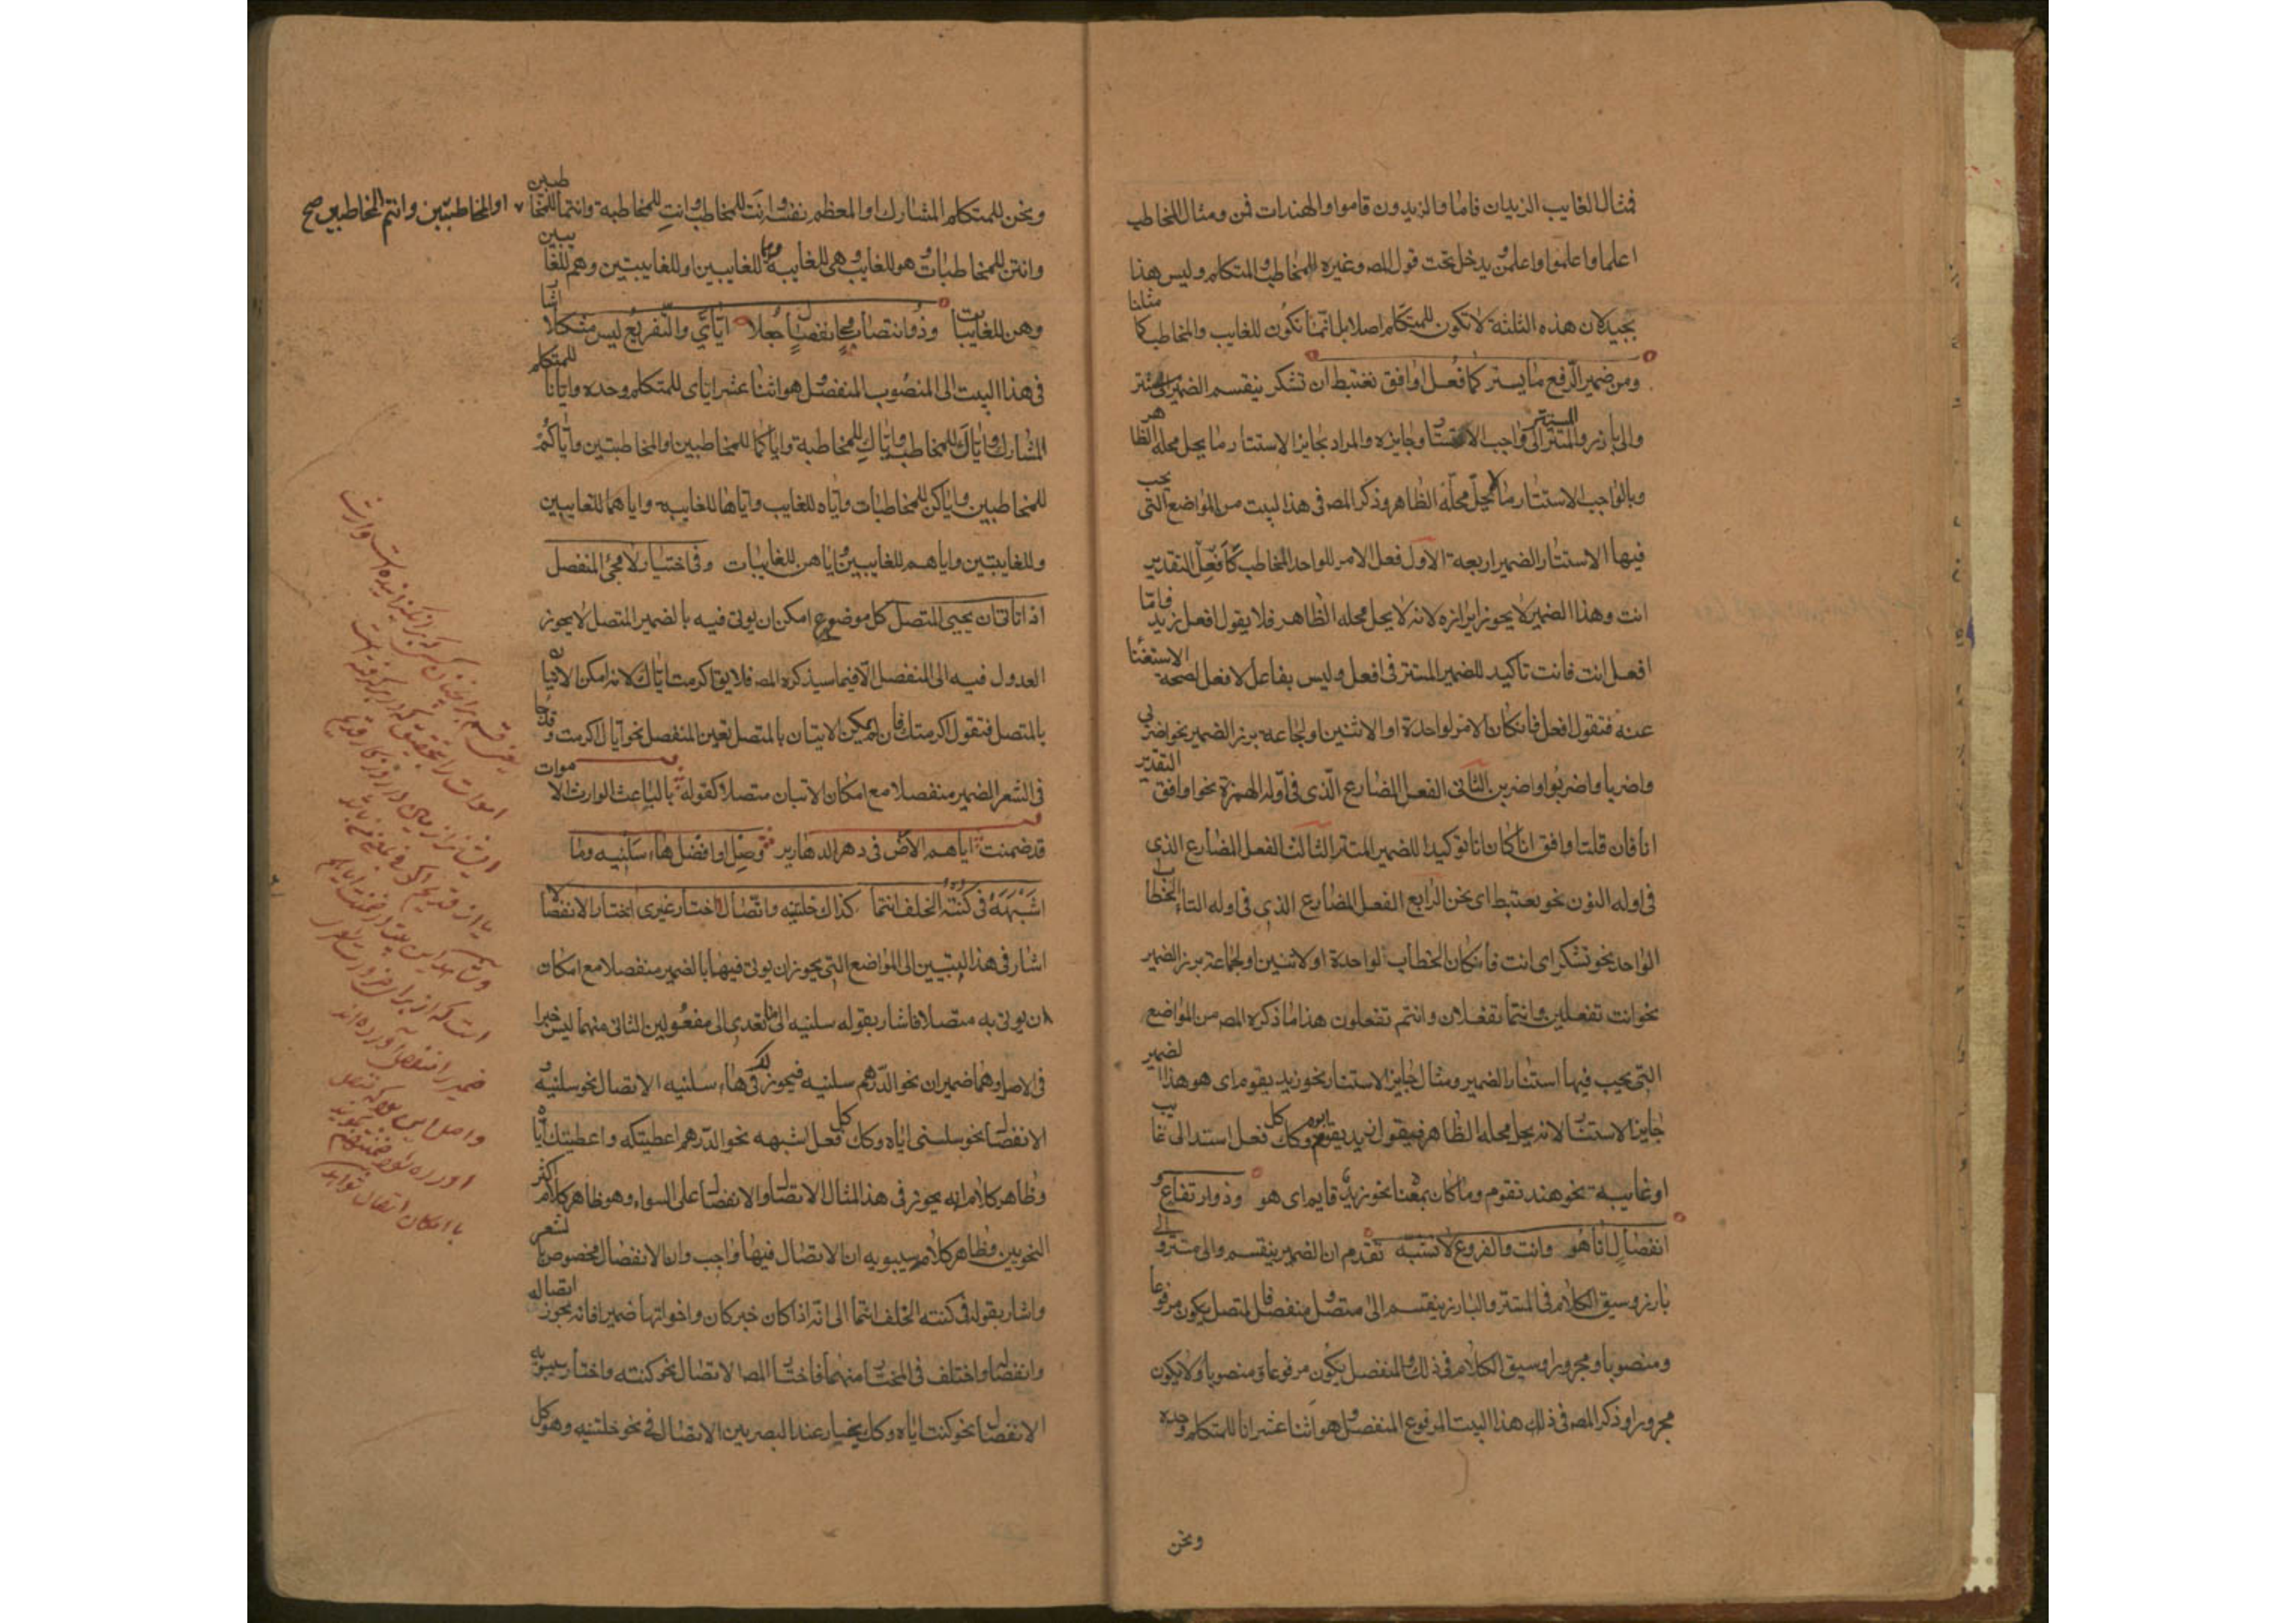 فمثال الغايب الزيدان قاما والزيدون قاموا والهندات قمن ومثال المخاطب
اعلما واعلموا واعلمن ويدخل تحت قول المص وغيره المخاطب والمتكلم وليس هذا
بجيد لان هذه الثلثة لا تكون للمتكلم اصلا بل انما تكون للغايب والمخاطب كما مثلنا
ومن ضمير الرفع ما يستتر كافعل اوافق نغتبط اذ تشكر ينقسم الضمير الى مستتر
والى بارز والمستتر الى واجب الاستتار وجايزه والمراد بجايز الاستتار ما يحل محله الظاهر
وبالواجب الاستتار ما لا يحل محله الظاهر وذكر المص فى هذا لبيت من المواضع التى يجب
فيها الاستتار الضمير اربعة الاول فعل الامر للواحد المخاطب كافعل التقدير
انت وهذا الضمير لا يجوز ابرازه لانه لا يحل محله الظاهر فلا يقول افعل زيد فاما
افعل انت فانت تاكيد للضمير المستتر فى افعل وليس بفاعل لافعل لصحة الاستغنا
عنه فتقول افعل فانكان الامر لواحدة او الاثنين او لجماعه برز الضمير نحو اضربى
واضربا واضربوا واضربن الثانى الفعل المضارع الذى فى اوله الهمزة نحو اوافق التقدير
انا فان قلت اوافق انا كان انا توكيدا للضمير المستتر الثالث الفعل المضارع الذى
فى اوله النون نحو نغتبط اى نحن الرابع الفعل المضارع الذى فى اوله التاء لخطاب
الواحد نحو تشكر اى انت فانكان الخطاب لواحدة او لاثنين او لجماعة برز الضمير
نحو انت تفعلين وانتما تفعلان وانتم تفعلون هذا ما ذكره المص من المواضع
التى يجب فيها استتار الضمير ومثال جايز الاستتار نحو زيد يقوم اى هو وهذا الضمير
جايز الاستتار لانه يحل محله الظاهر فيقول زيد يقوم ابوه وكذلك كل فعل استند الى غايب
او غايبة نحو هند تقوم وما كان بمعناه نحو زيد قايم اى هو وذو ارتفاع و
انفصال انا هو وانت والفروع لا تشتبه تقدم ان الضمير ينقسم والى مستتر والى
بارز وسبق الكلام فى المستتر والبارز ينقسم الى متصل ومنفصل فالمتصل يكون مرفوعا
ومنصوبا ومجرورا وسبق الكلام فى ذلك والمنفصل يكون مرفوعا ومنصوبا ولا يكون
مجرورا وذكر المص فى ذلك هذا البيت المرفوع المنفصل وهو اثنا عشر انا للمتكلم وحده
ونحن
ونحن للمتكلم المشارك او المعظم نفسه وانت للمخاطب وانت للمخاطبة وانتما للمخاطبين
او المخاطبتين وانتم للمخاطبين صح
وانتن للمخاطبات وهو للغايب وهى للغايبة وهما للغايبين او للغايبتين وهم للغايبين
وهن للغايبات وذو انتصاب فى انفصال جعلا اياى والتفريع ليس مشكلا اشار
فى هذا البيت الى المنصوب المنفصل وهو اثنا عشر اياى للمتكلم وحده وايانا للمتكلم
المشارك واياك للمخاطب واياك للمخاطبة واياكما للمخاطبين او المخاطبتين واياكم
للمخاطبين واياكن للمخاطبات واياه للغايب واياها للغايبه واياهما للغايبين
وللغايبتين واياهم للغايبين واياهن للغايبات وفى اختيار لا يجئ المنفصل
اذا تاتى ان يجيئ المتصل كل موضوع امكن ان يوتى فيه بالضمير المتصل لا يجوز
العدول فيه الى المنفصل الا فيما سيذكره المص فلا يقال اكرمت اياك لانه امكن الاتيان
بالمتصل فتقول اكرمتك فان لم يمكن الاتيان بالمتصل تعين المنفصل نحو اياك اكرمت وقد جا
فى الشعر الضمير منفصلا مع امكان الاتيان متصلا كقوله بالباعث الوارث الاموات
قد ضمنت اياهم الارض فى دهر الدهارير وصل او افصل هاء سلنيه وما
اشبهه فى كنته الخلف انتما كذاك خلتنيه واتصالا اختار غيرى اختار الانفصالا
اشار فى هذا البيتين الى المواضع التى يجوز ان يوتى فيها بالضمير منفصلا مع امكان
ان يوتى به متصلا فاشار بقوله سلنيه الى ما تعدى الى مفعولين الثانى منهما ليس خبرا
فى الاصل وهما ضميران نحو الدرهم سلنيه فيجوز لك فى هاء سلنيه الاتصال نحو سلنيه و
الانفصال نحو سلنى اياه وكذلك كل فعل اشبهه نحو الدرهم اعطيتكه واعطيتك اياه
وظاهر كلامه انه يجوز فى هذا المثال الاتصال والانفصال على السواء وهو ظاهر كلام اكثر
النحويين وظاهر كلام سيبويه ان الاتصال فيها واجب وان الانفصال مخصوص بالشعر
واشار بقوله فى كنته الخلف انتما الى انه اذا كان خبر كان واخواتها ضميرا فانه يجوز اتصاله
وانفصاله واختلف فى المختار منهما فاختار المص الاتصال نحو كنته واختار سيبويه
الانفصال نحو كنت اياه وكذلك يختار عند البصريين الاتصال فى نحو خلتنيه وهو كل